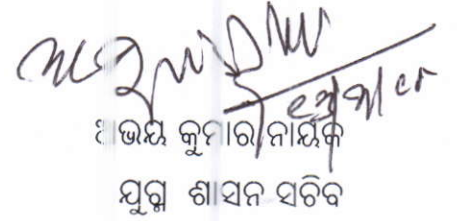 ଅଭୟ କୁମାର ନାୟକ
ଯୁଗ୍ମ ଶାସନ ସଚିବ